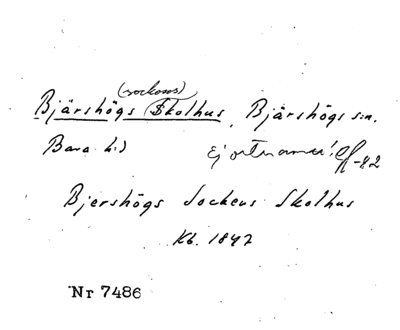 (sockens)
Bjärshögs Skolhus, Bjärshögs sn.
Bara hd Ej ortnamn! -82
Bjershögs Sockens Skolhus
Kb. 1847
Nr 7486